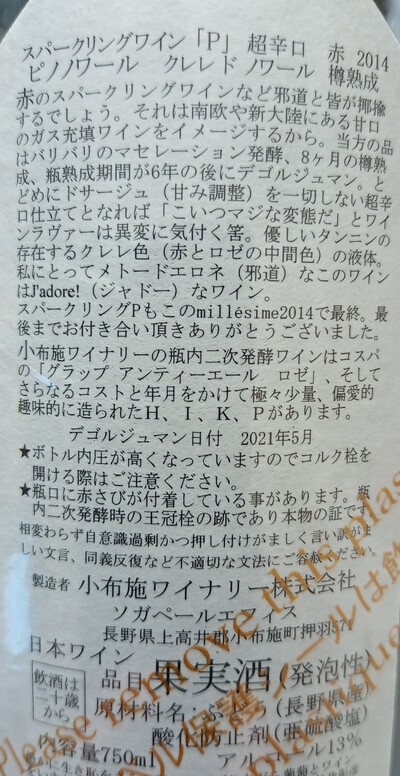 スパークリングワイン「P」 超辛口 赤 2014
ピノノワール クレレ ド ノワール 樽熟成
赤のスパークリングワインなど邪道と皆が揶揄
するでしょう。それは南欧や新大陸にある甘口
のガス充填ワインをイメージするから。当方の品
はバリバリのマセレーション発酵、8ヶ月の樽熟
成、瓶熟成期間が6年の後にデゴルジュマン。と
どめにドサージュ(甘み調整)を一切しない超辛
口仕立てとなれば「こいつマジな変態だ」とワイ
ンラヴァーは異変に気付く筈。優しいタンニンの
存在するクレレ色(赤とロゼの中間色)の液体。
私にとってメトードエロネ(邪道)なこのワイン
はJ'adore!(ジャドー)なワイン。
スパークリングPもこのmillésime2014で最終。最
後までお付き合い頂きありがとうございました。
小布施ワイナリーの瓶内二次発酵ワインはコスパ
の「グラップ アンティーエール ロゼ」、そして
さらなるコストと年月をかけて極々少量、偏愛的
趣味的に造られたH、I、K、Pがあります。
デゴルジュマン日付 2021年5月
★ボトル内圧が高くなっていますのでコルク栓を
開ける際はご注意ください。
★瓶口に赤さびが付着している事があります。瓶
内二次発酵時の王冠栓の跡であり本物の証です
相変わらず自意識過剰かつ押し付けがましく言い訳がま
しい文言、同義反復など不適切な文法にご容赦ください。
製造者 小布施ワイナリー株式会社
ソガペールエフィス
長野県上高井郡小布施町押羽571
日本ワイン
飲酒は
二十歳
から
品目 果実酒(発泡性)
原材料名:ぶどう(長野県産)
酸化防止剤(亜硫酸塩)
内容量750ml アルコール13%
Please remove this